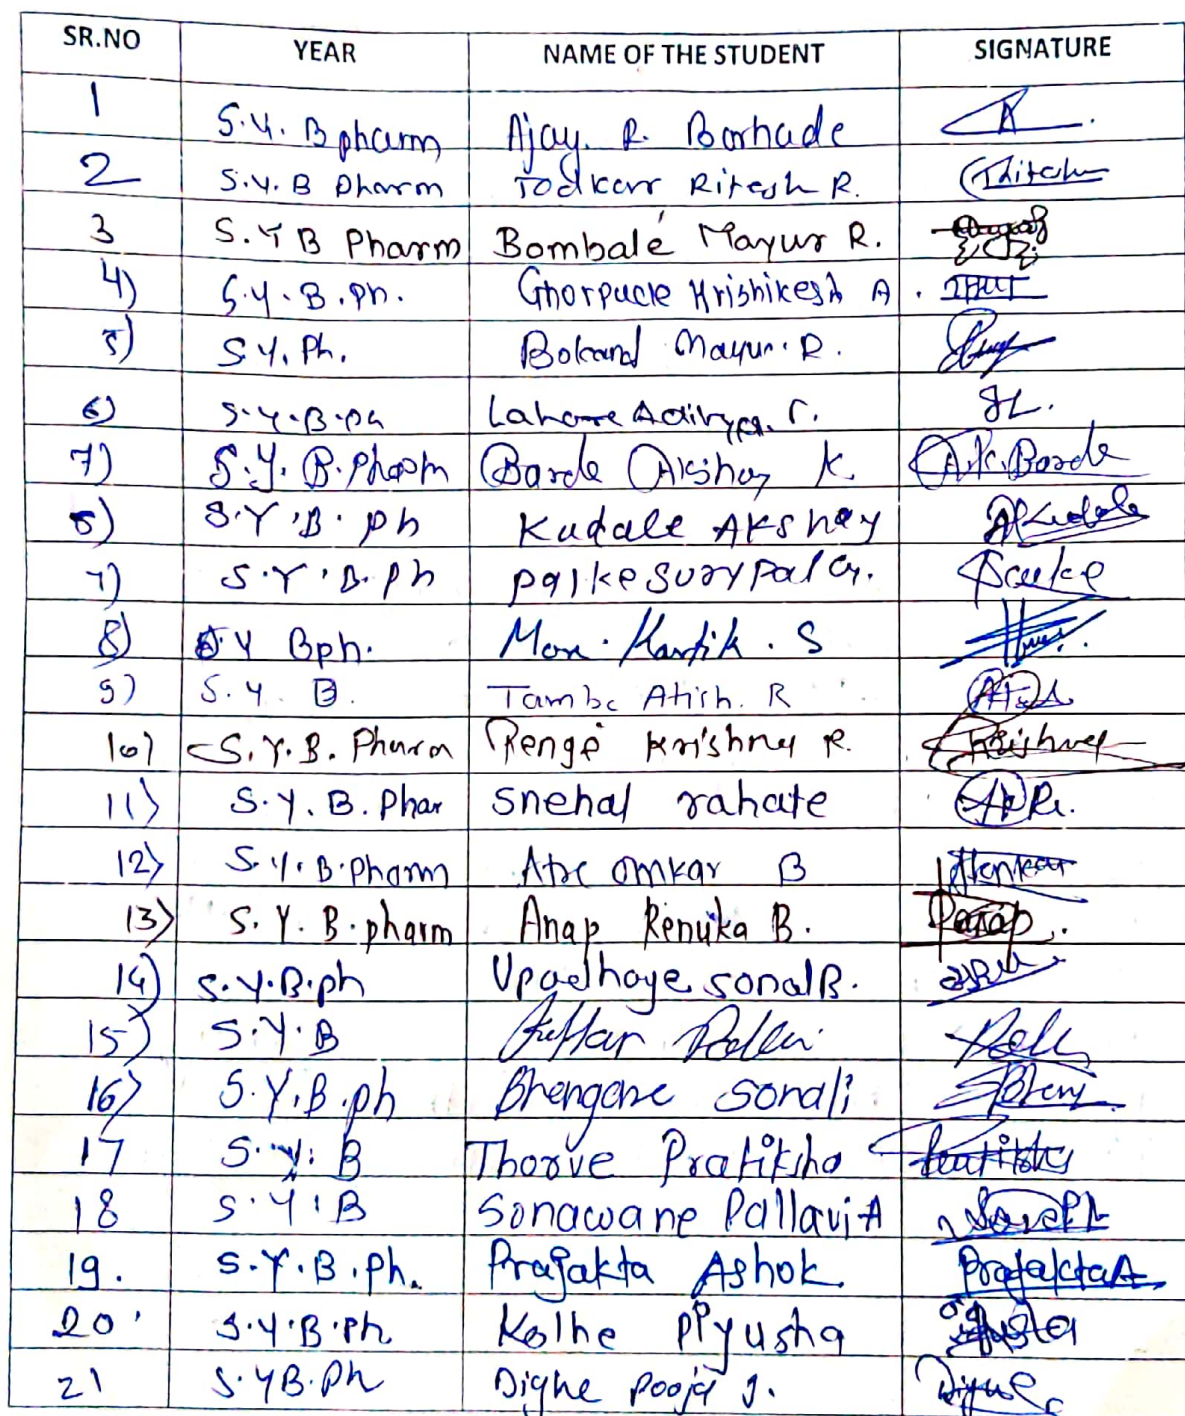 SR.NO YEAR NAME OF THE STUDENT SIGNATURE
1 S.Y. B pharm Ajay. R. Barhade
2 S.Y. B Pharm Todkar Ritesh R.
3 S.Y B Pharm Bombale Mayur R.
4) S.Y.B.Ph. Ghorpade Hrishikesh A.
5) S.Y.Ph. Mayur.R.
6) S.Y.B.ph Lahore Aditya.
7) S.Y.B.Pharm Barde Akshay K. A.K.Barde
8) S.Y.B.ph Kudale Akshay AKudale
7) S.Y.B.Ph palke surypal G. Palke
8) S.Y Bph. More. Kartik. S
9) S.Y. B Tambe Atish. R
10) S.Y.B. Pharm Renge Krishna R. Krishna
11) S.Y.B.Phar snehal rahate
12) S.Y.B.Pharm Atre omkar B
13) S.Y.B.pharm Anap Renuka B.
14) S.Y.B.ph Upadhaye sonal B.
15) S.Y.B
16) S.Y.B.ph Bhangare Sonali
17 S.Y.B Thorve Pratiksha Pratiksha
18 S.Y.B Sonawane Pallavi A
19. S.Y.B.Ph. Prajakta Ashok. PrajaktaA
20 S.Y.B.Ph. Kolhe Piyusha
21 S.YB.Ph Dighe Pooja J.